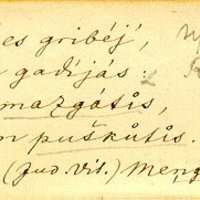 es gribēj',
gadījás:
mazgátis,
puškůtis.
(Jud. Vil.) Meng